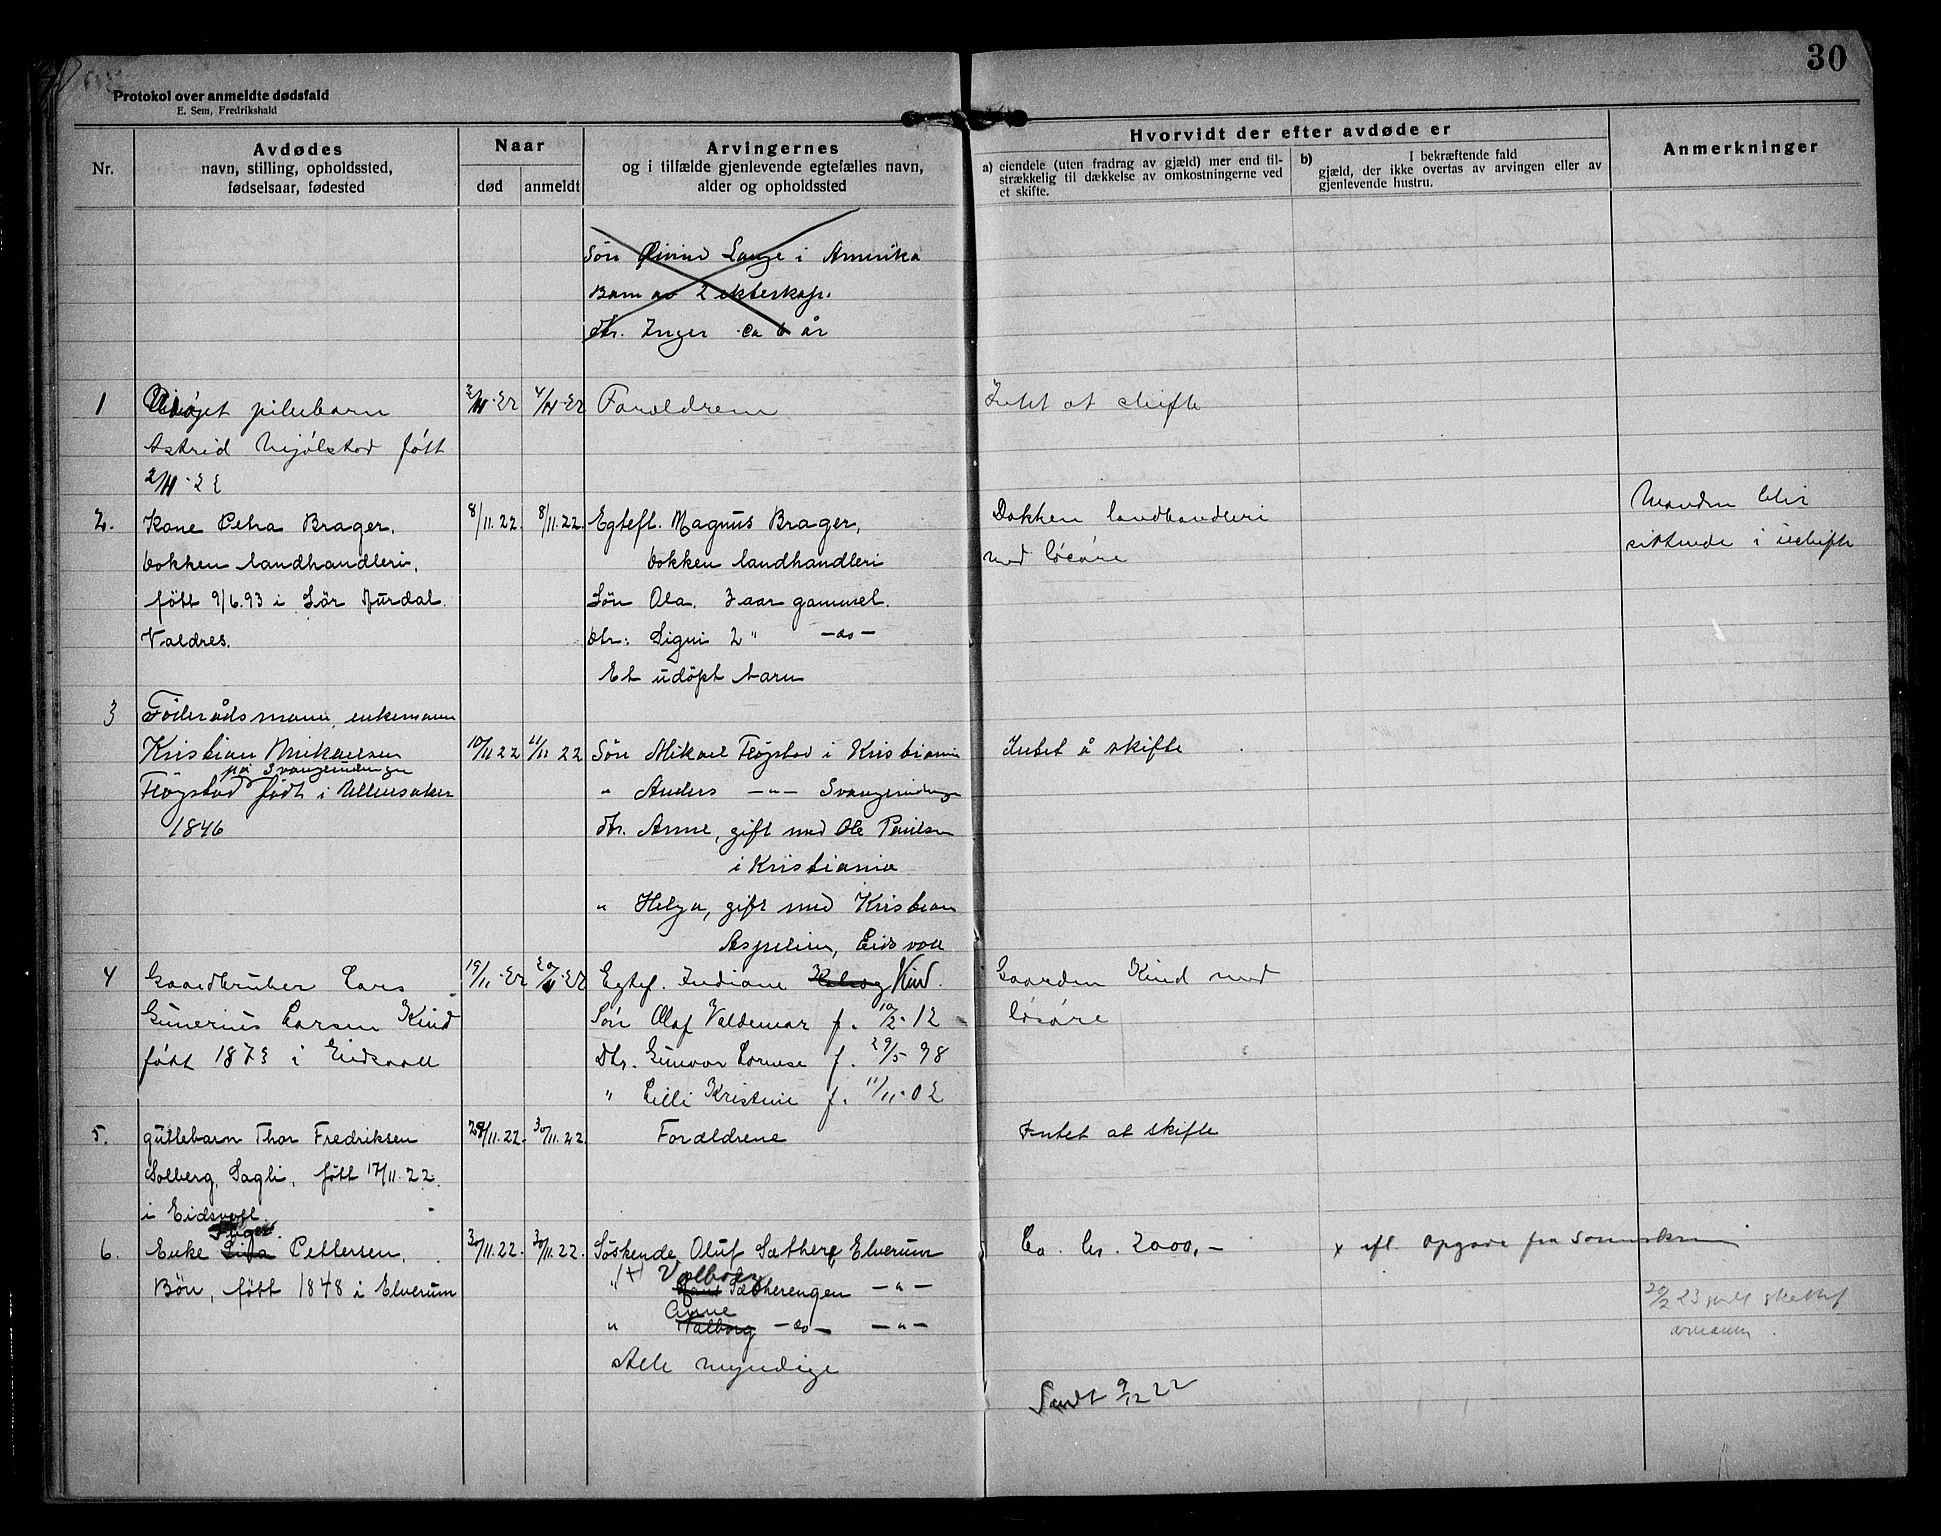 30
Protokol over anmeldte dødsfald
E. Sem, Fredrikshald
Nr.
Avdødes
navn, stilling, opholdssted,
fødselsaar, fødested
Naar
død
anmeldt
Arvingernes
og i tilfælde gjenlevende egtefælles navn,
alder og opholdssted
Hvorvidt der efter avdøde er
a) eiendele (uten fradrag av gjæld) mer end til-
strækkelig til dækkelse av omkostningerne ved
et skifte.
b) I bekræftende fald
gjæld, der ikke overtas av arvingen eller av
gjenlevende hustru.
Anmerkninger
Søn Øivind Lange i Amerika
Barn av 2 ekteskap.
dtr. Inger ca 6 år
1 Udøpt pikebarn 3/11-22 4/11-22 Forældrene Intet at skifte
Astrid født
2/11-22
2. Kone Petra Brager, 8/11.22. 8/11.22. Egtefl. Magnus Brager, Dokken landhandleri Manden blir
Dokken landhandleri, Dokken landhandleri med løsøre sittende i uskifte
født 9/6.93 i Sør Aurdal. Søn Ola. 3 aar gammel.
Valdres. Dtr: Signi 2 " -do-
Et udøpt barn
3 Føderådsmann, enkemann
Kristian Mikaelsen 10/11 22 11/11 22 Søn Mikael Fløgstad i Kristiania Intet å skifte
på
Fløgstad født i Ullensaker " Anders -"-
1846 dtr. Anne, gift med Ole Paulsen
i Kristiania
" Helga, gift med Kristian
Eidsvoll
4 Gaardbruker Lars 19/11-22 20/11-22 Egtef. Indiane Kind. Gaarden Kind med
Gunerius Larsen Kind Søn Olaf Valdemar f. 10/2-12 løsøre
født 1873 i Eidsvoll Dtr. Gunvor f. 29/5-98
" Lilli Kristine f. 11/11-02
5. guttebarn Thor Fredriksen 29/11.22. 30/11.22. Forældrene Intet at skifte
Solberg, Sagli, født 17/11.22.
i Eidsvoll.
6. Enke Pettersen, 30/11.22. 30/11.22. Søskende Oluf Sæthere Elverum Ca. kr. 2000,- x efl. opgave fra
Bøn, født 1848 i Elverum " (+) Valborg Sætherengen -"-
20/2 23
" Anne Valborg -do- -"-
Alle myndige
Sendt 9/12 22